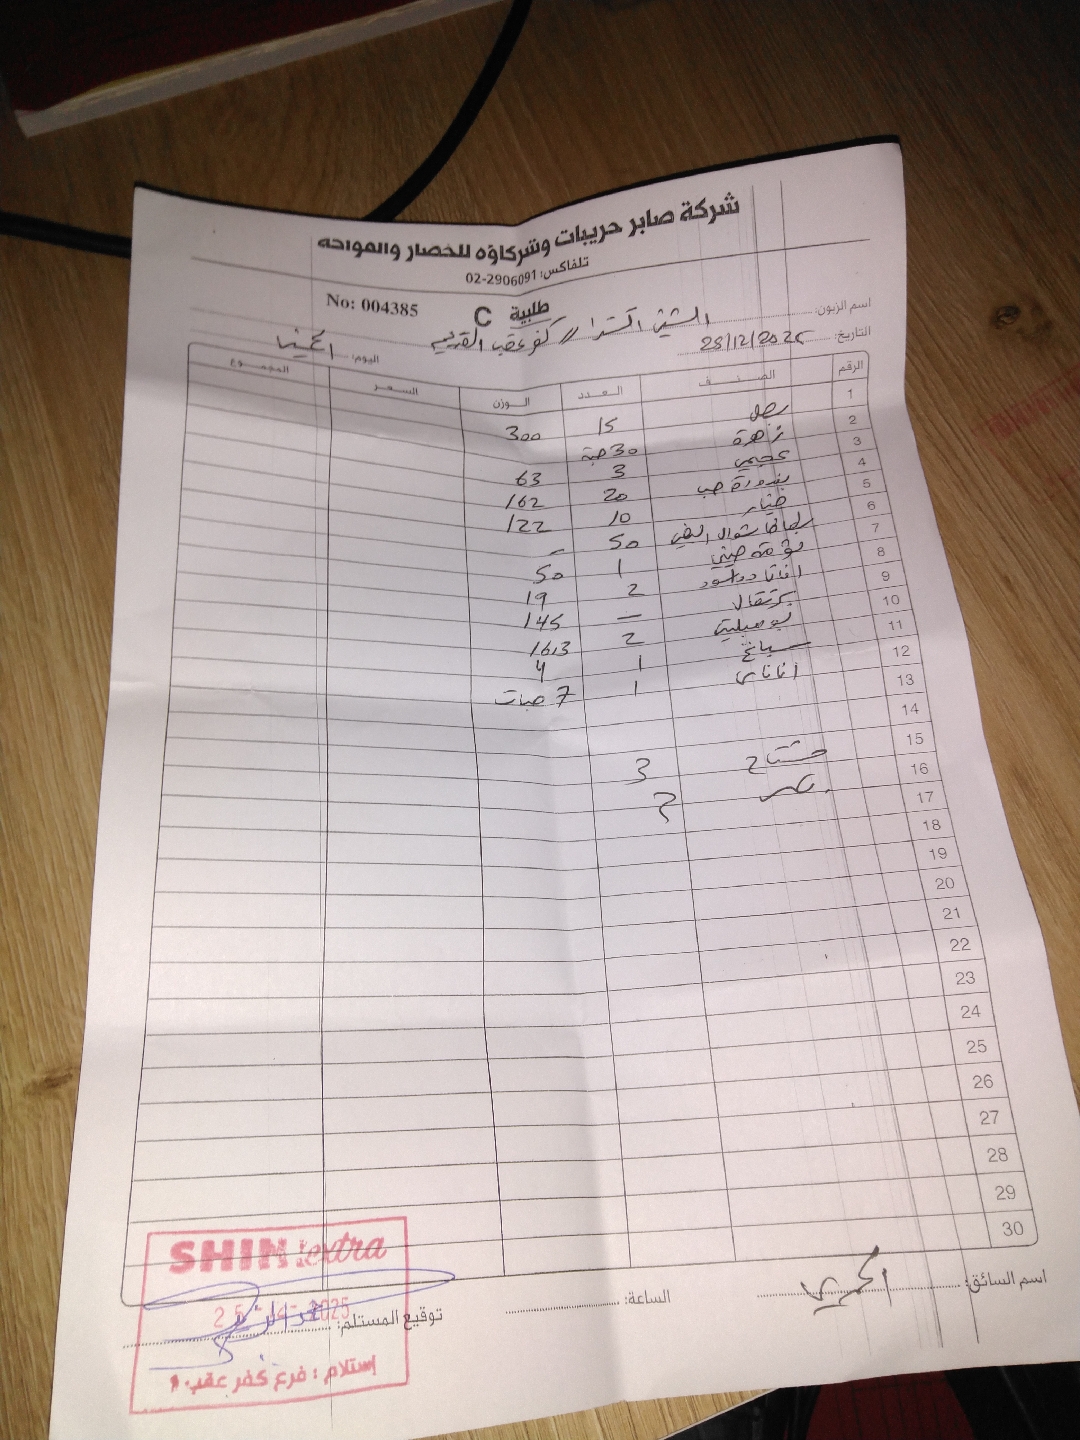 شركة صابر حريبات وشركاؤه للخضار والفواكه
تلفاكس: 02-2906091
طلبية C No: 004385
اسم الزبون: الشيني اكسترا // كفر عقب القديم
التاريخ: 25/12/2025 اليوم: الخميس
الرقم الصنف العدد الوزن السعر المجموع
1 بصل 15 300
2 زهرة 30 حبة
3 عجمي 3 63
4 بندورة حب 20 162
5 خيار 10 122
6 بطاطا شوال ابيض 50 -
7 ثومة صيني 1 50
8 اسود 2 19
9 برتقال - 145
10 بوملي 2 16.3
11 سبانخ 1 4
12 اناناس 1 7 حبات
13
14
15 مشتاح 3
16 2
17
18
19
20
21
22
23
24
25
26
27
28
29
30
اسم السائق: الساعة: توقيع المستلم:
SHINI extra
2025
إستلام : فرع كفر عقب